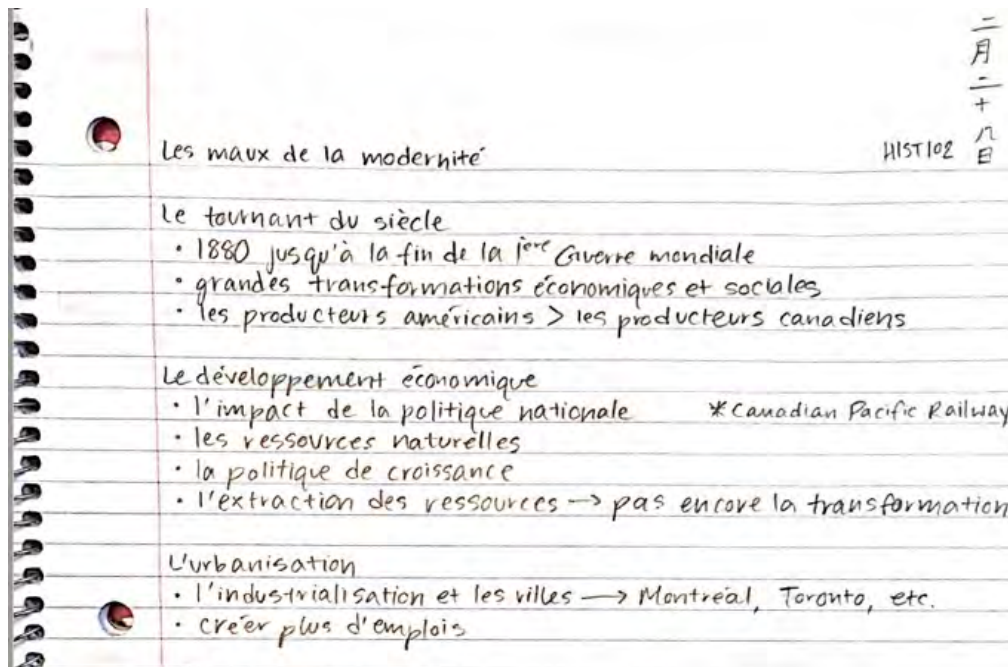 二月二十八日
Les maux de la modernité HIST102
Le tournant du siècle
· 1880 jusqu'à la fin de la 1ère Guerre mondiale
· grandes transformations économiques et sociales
· les producteurs américains > les producteurs canadiens
Le développement économique
· l'impact de la politique nationale *Canadian Pacific Railway
· les ressources naturelles
· la politique de croissance
· l'extraction des ressources → pas encore la transformation
L'urbanisation
· l'industrialisation et les villes → Montréal, Toronto, etc.
· créer plus d'emplois